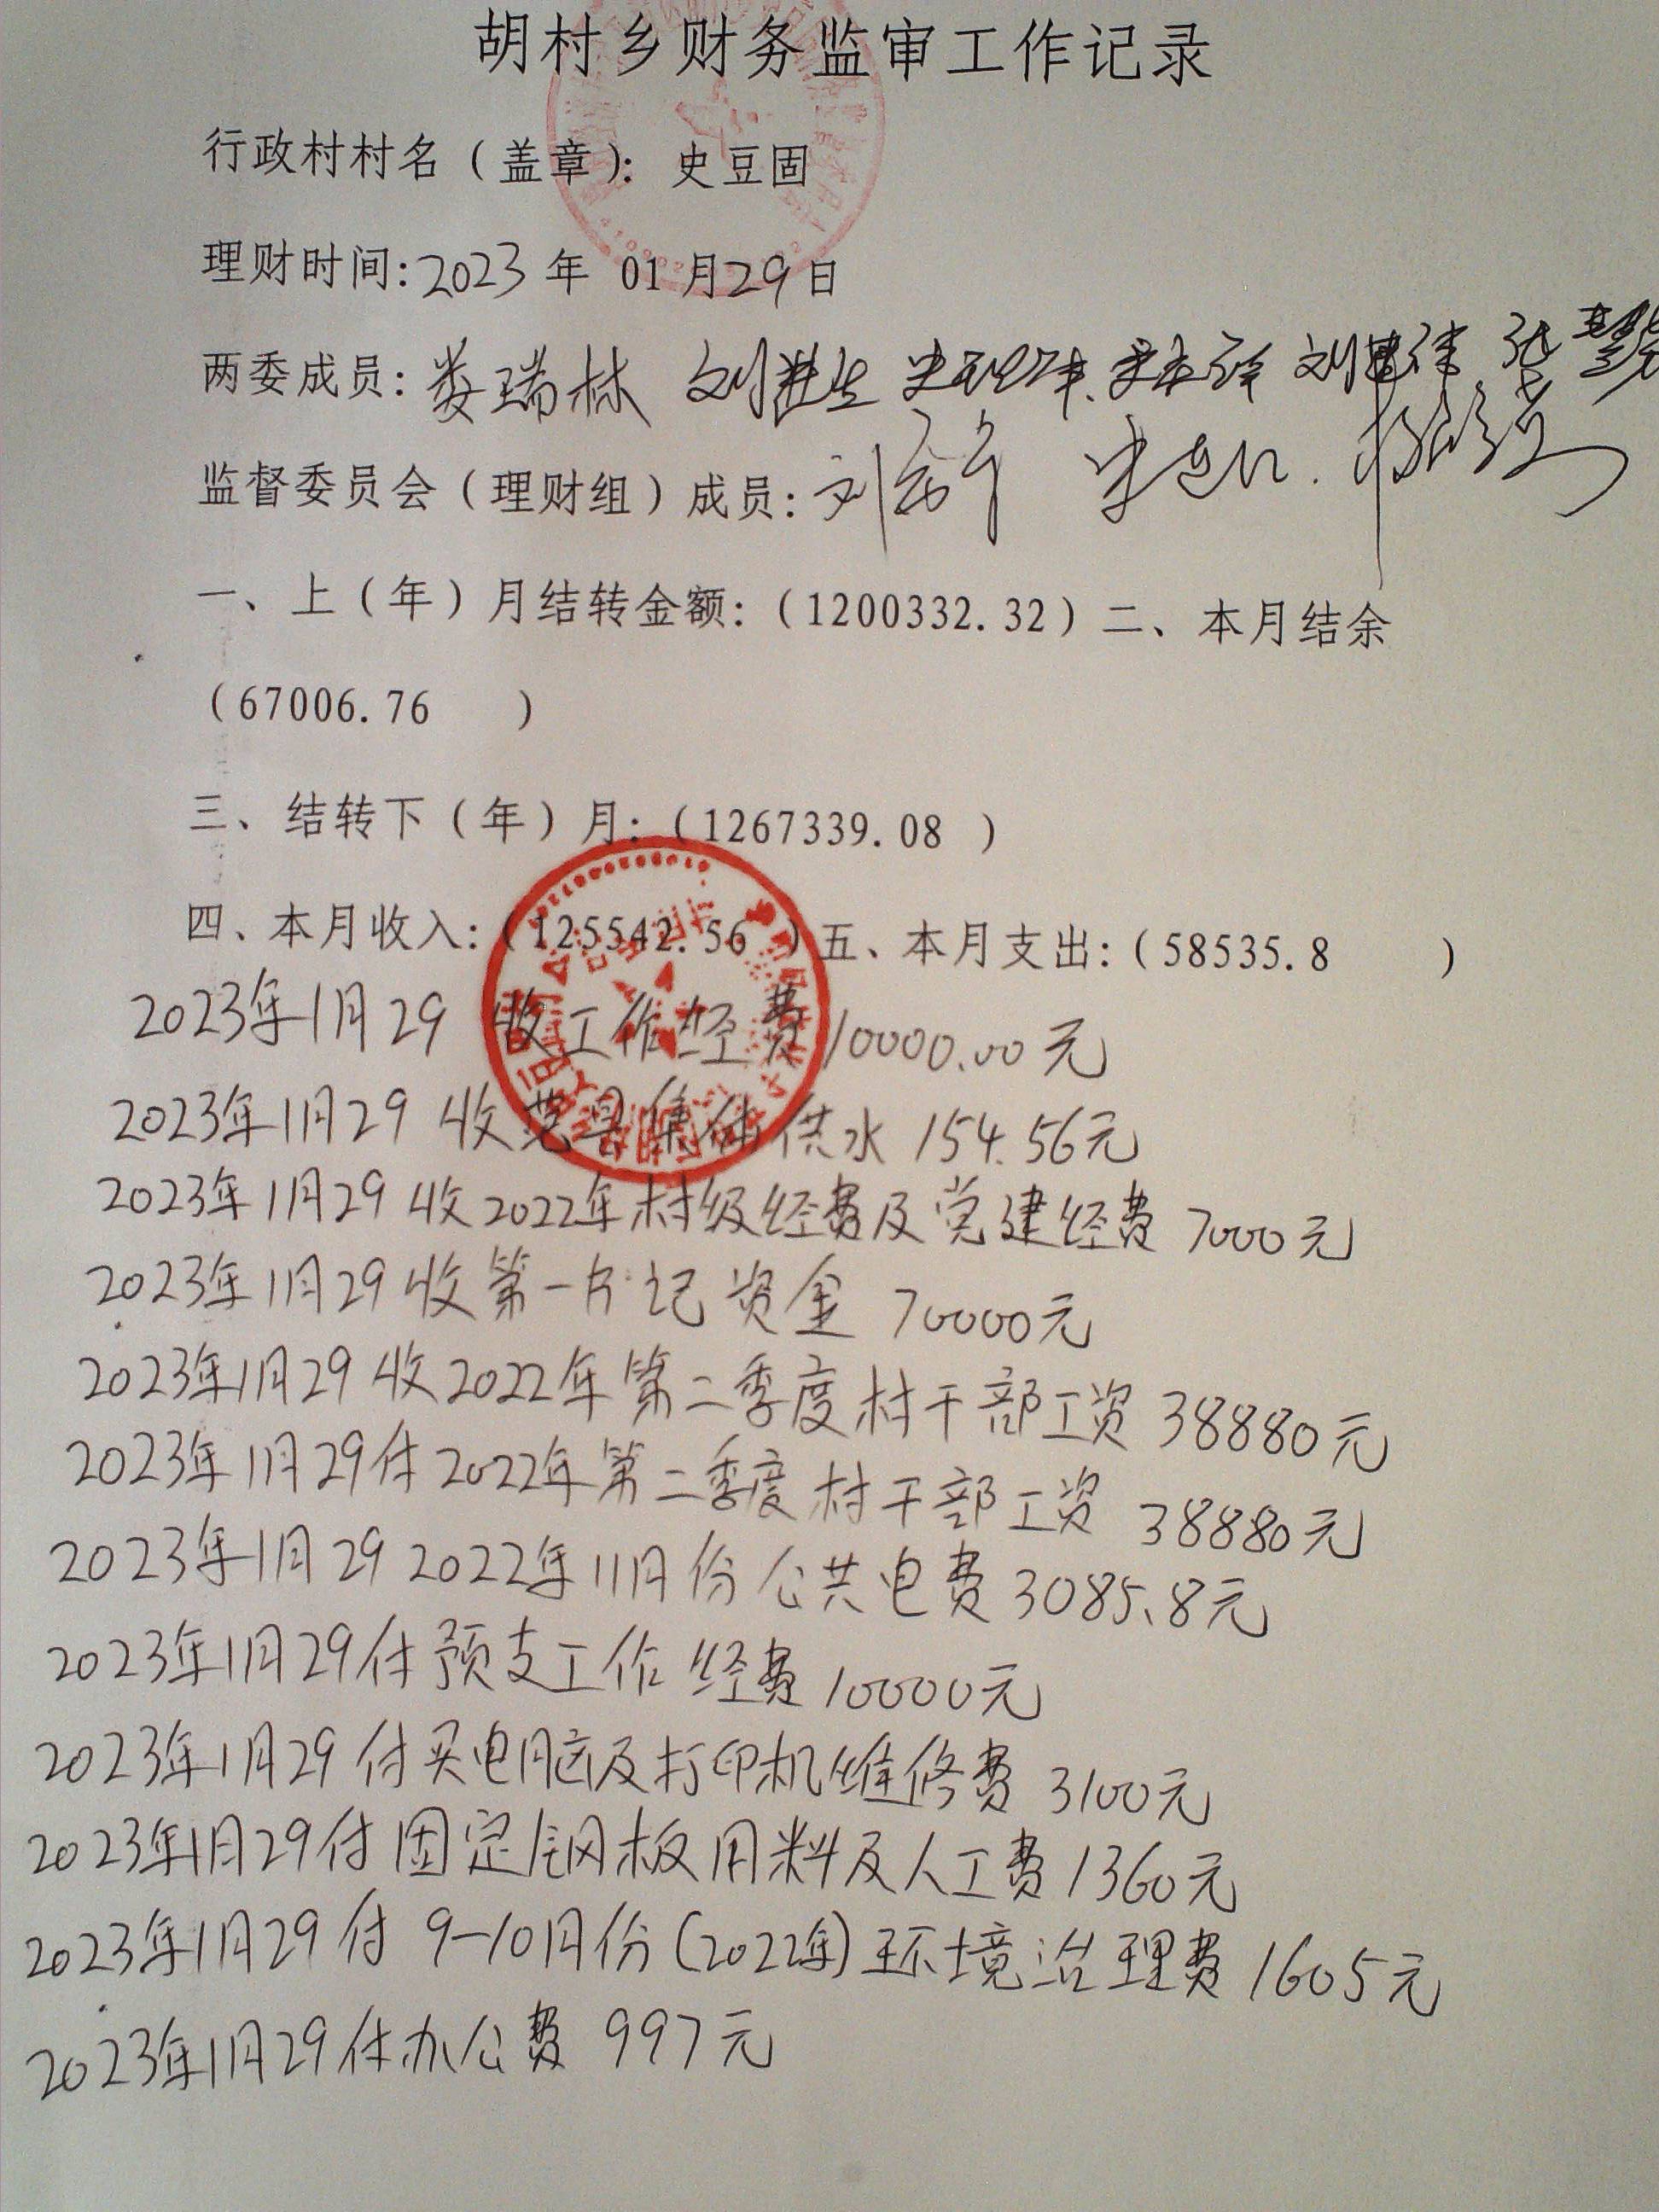 胡村乡财务监审工作记录
行政村村名（盖章）：史豆固
理财时间：2023年 01月29日
两委成员：娄瑞林 刘进生
监督委员会（理财组）成员：
一、上（年）月结转金额：（1200332.32）二、本月结余
（67006.76 ）
三、结转下（年）月：（1267339.08 ）
四、本月收入：（125542.56 ）五、本月支出：（58535.8 ）
2023年1月29 收工作经费10000.00元
2023年1月29 收范县集体供水 154.56元
2023年1月29 收2022年村级经费及党建经费 7000元
2023年1月29 收第一书记资金 70000元
2023年1月29 收2022年第二季度村干部工资 38880元
2023年1月29付2022年第二季度村干部工资 38880元
2023年1月29 2022年11月份公共电费3085.8元
2023年1月29付预支工作经费10000元
2023年1月29付买电脑及打印机维修费 3100元
2023年1月29付固定钢板用料及人工费1360元
2023年1月29付 9-10月份(2022年)环境治理费1605元
2023年1月29付办公费 997元